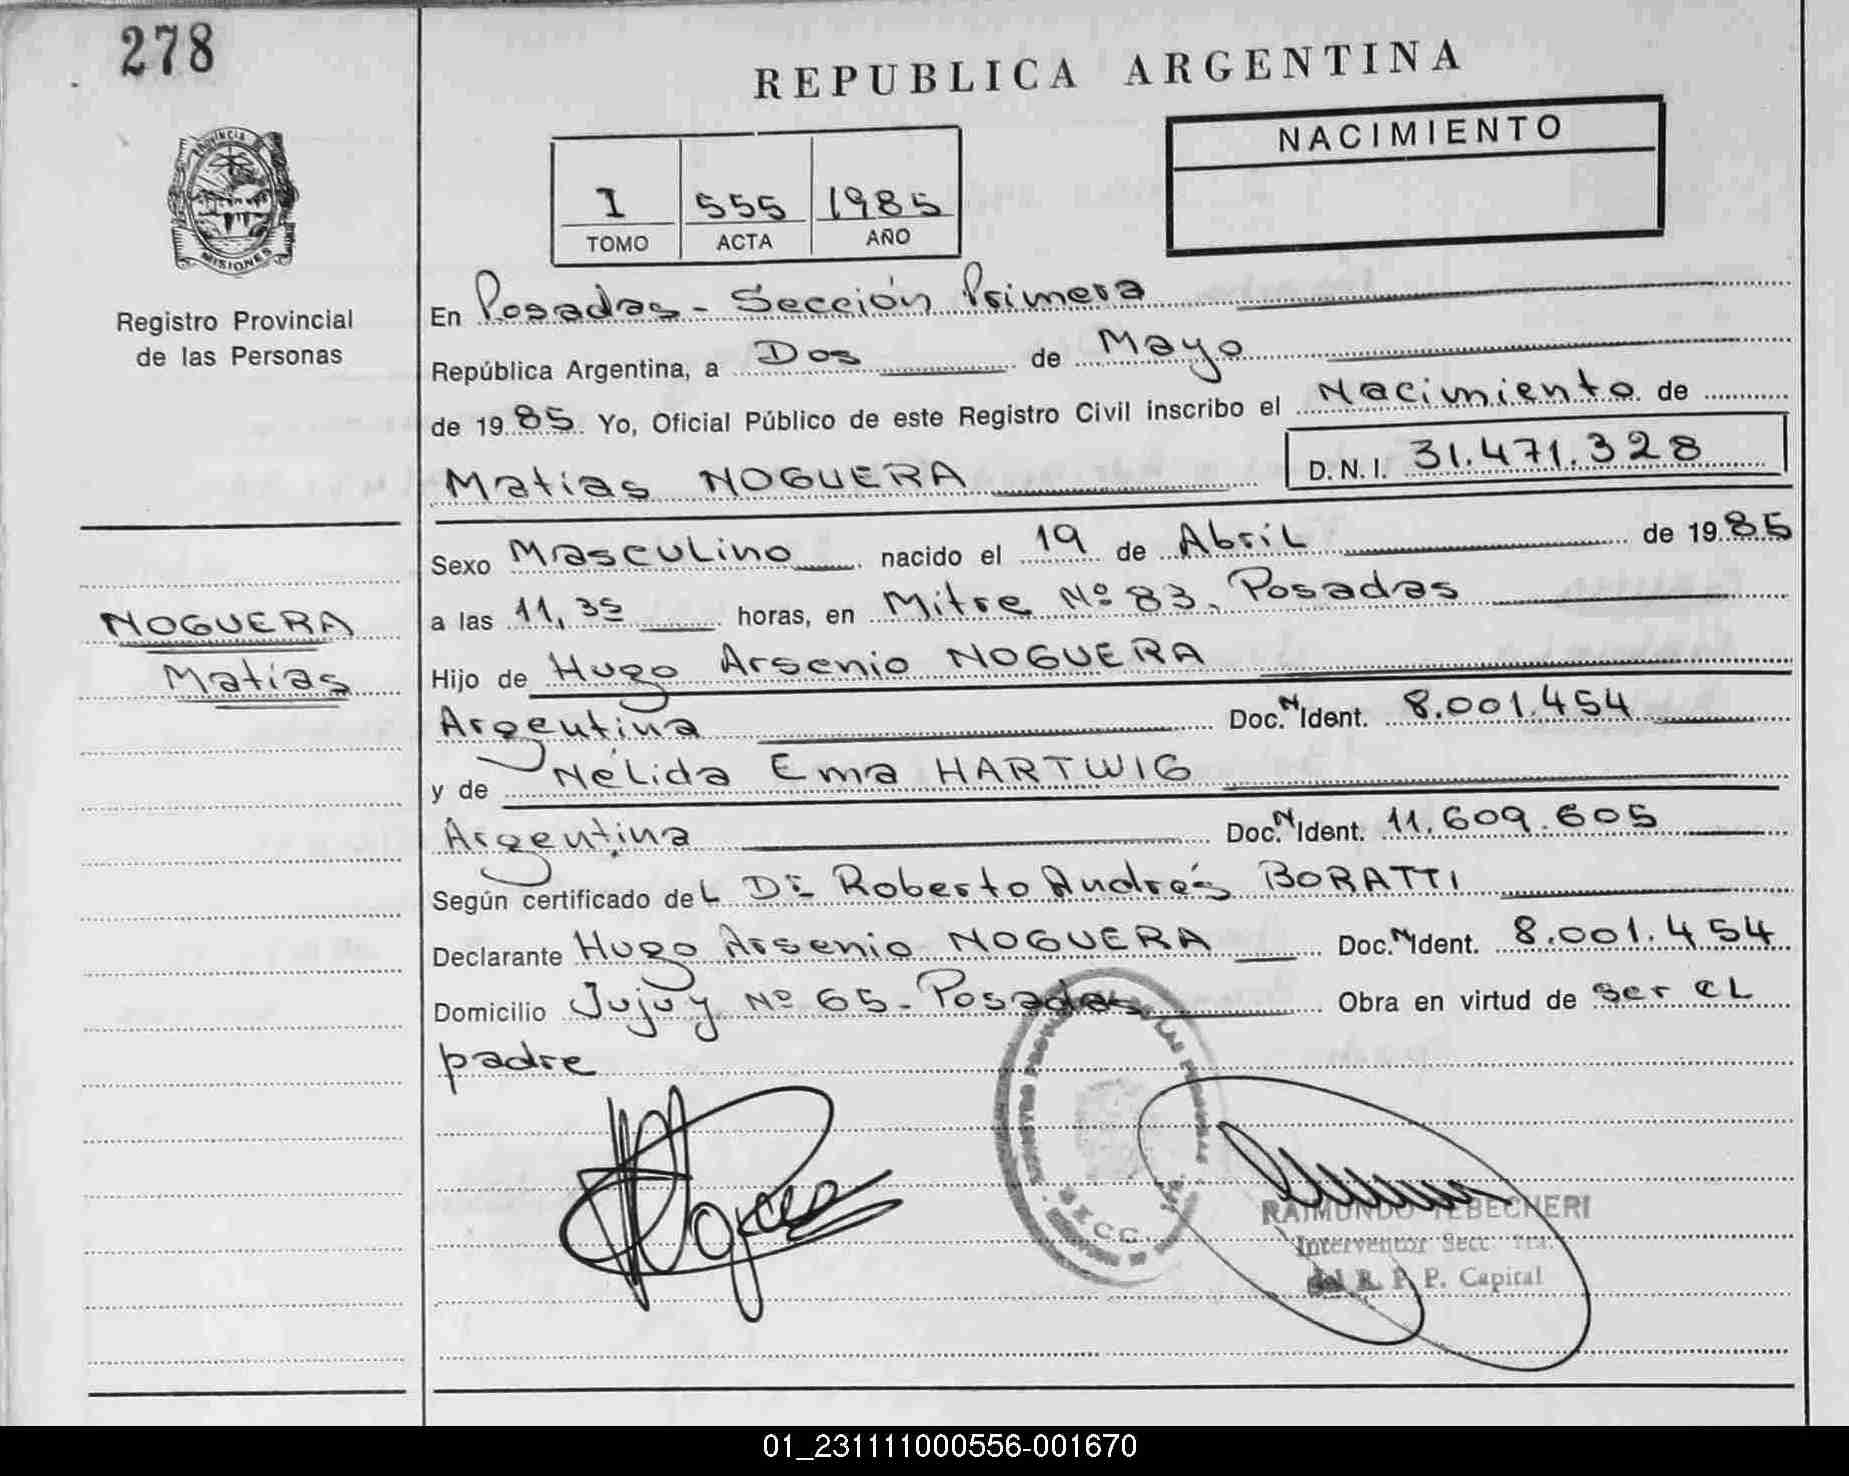 278
REPUBLICA ARGENTINA
NACIMIENTO
I 555 1985
TOMO ACTA AÑO
PROVINCIA DE
MISIONES
Registro Provincial
de las Personas
En Posadas - Sección Primera
República Argentina, a Dos de Mayo
de 1985 Yo, Oficial Público de este Registro Civil inscribo el Nacimiento de
Matias NOGUERA D.N.I. 31.471.328
Sexo Masculino nacido el 19 de Abril de 1985
a las 11,35 horas, en Mitre Nº 83. Posadas
NOGUERA
Matías
Hijo de Hugo Arsenio NOGUERA
Argentina Doc. N Ident. 8.001.454
y de Nélida Ema HARTWIG
Argentina Doc. N Ident. 11.609.605
Según certificado del Dr Roberto Andrés BORATTI
Declarante Hugo Arsenio NOGUERA Doc. N Ident. 8.001.454
Domicilio Jujuy Nº 65 - Posadas Obra en virtud de ser el
padre
RAIMUNDO TEBECHERI
Interventor Secc. 1ra.
del R. P. P. Capital
01_231111000556-001670